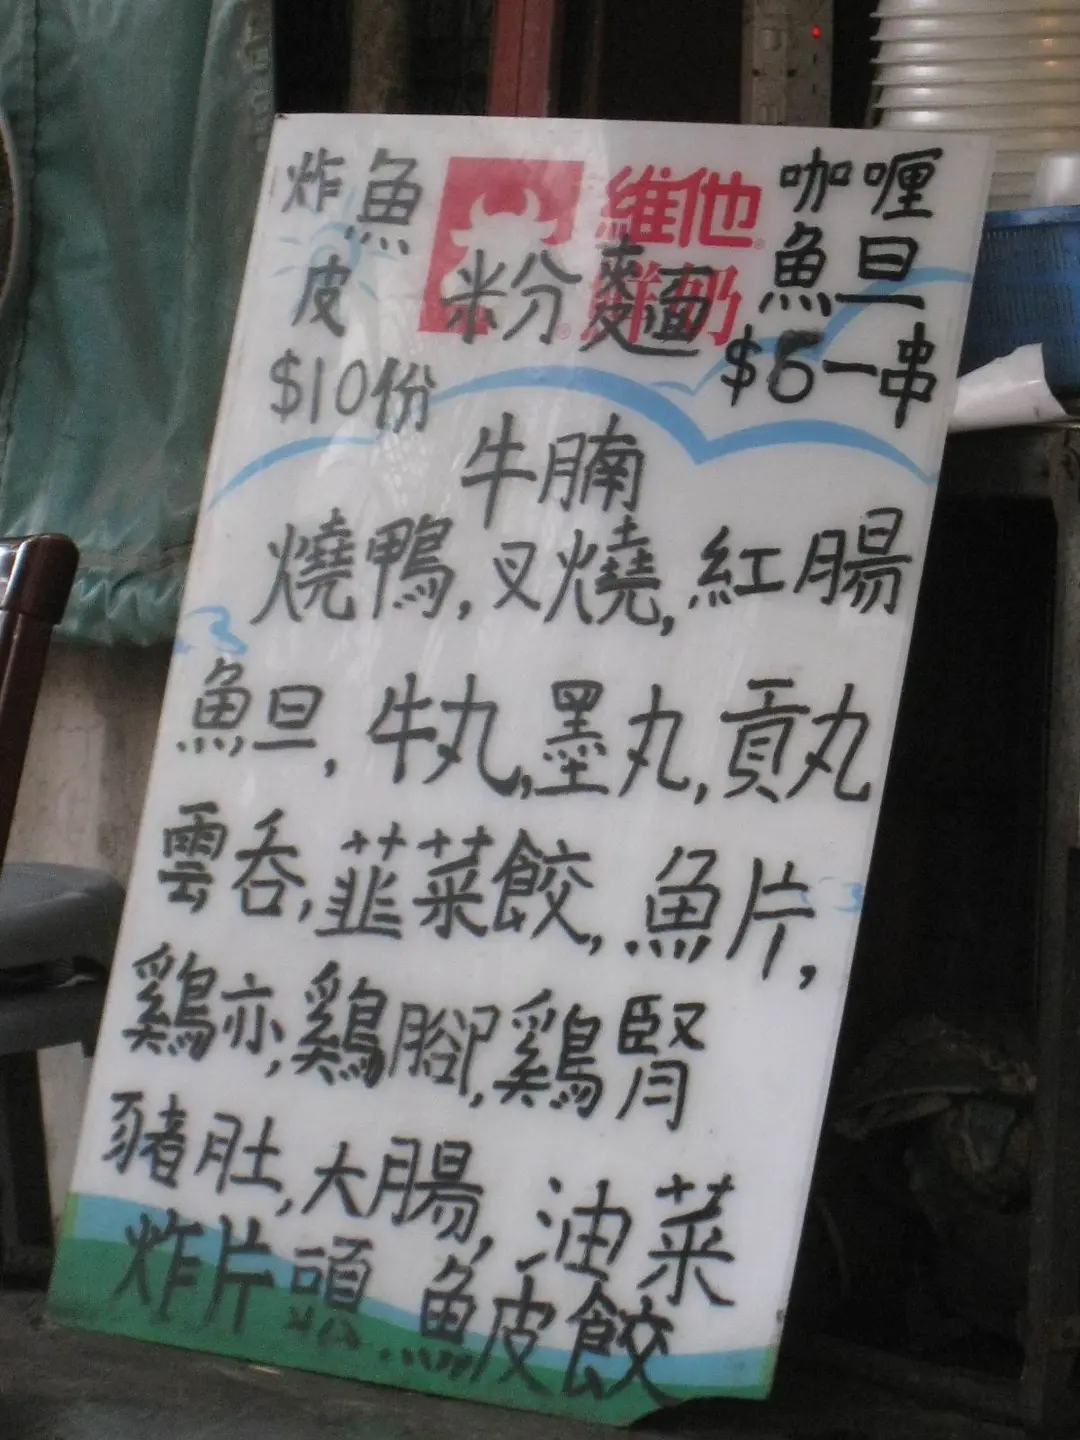 炸魚
皮
$10份
維他
鮮奶
粉麵
咖喱
魚旦
$6一串
牛腩
燒鴨,叉燒,紅腸
魚旦,牛丸,墨丸,貢丸
雲吞,韮菜餃,魚片,
鷄亦,鷄腳,鷄腎
豬肚,大腸,油菜
炸片頭 魚皮餃